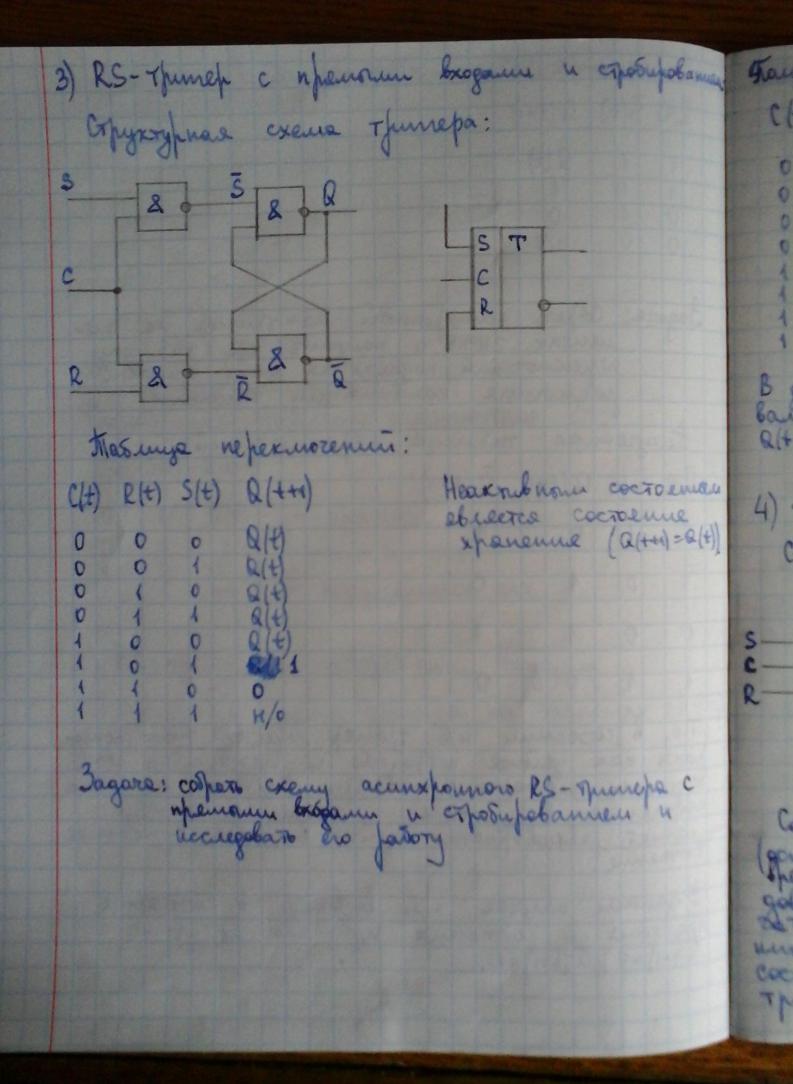 3) RS-тригер с прямыми входами и стробированием
Структурная схема тригера:
S & S̅ & Q
C
R & R̅ & Q̅
S T
C
R
Таблица переключений:
C(t) R(t) S(t) Q(t+1)
0 0 0 Q(t)
0 0 1 Q(t)
0 1 0 Q(t)
0 1 1 Q(t)
1 0 0 Q(t)
1 0 1 1
1 1 0 0
1 1 1 н/о
Неактивным состоянием
является состояние
хранения (Q(t+1)=Q(t))
Задача: собрать схему асинхронного RS-тригера с
прямыми входами и стробированием и
исследовать его работу
C(
0
0
0
0
1
1
1
1
В
Q(t
4)
S
C
R